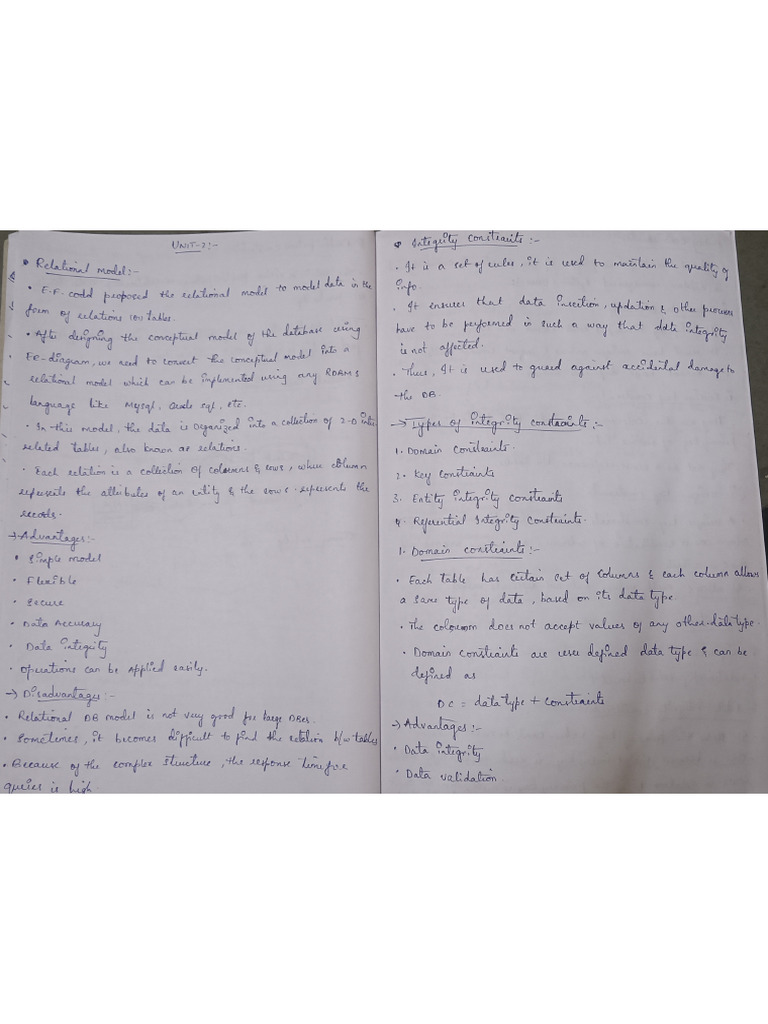 UNIT-2:-
• Relational model:-
• E.F. codd proposed the relational model to model data in the
form of relations too tables.
• After designing the conceptual model of the database using
ER-diagram, we need to convert the conceptual model into a
relational model which can be implemented using any RDBMS
language like Mysql, Oracle sql, etc.
• In this model, the data is organized into a collection of 2-D inter
related tables, also known as relations.
• Each relation is a collection of columns & rows, where column
represents the attributes of an entity & the rows represents the
records.
→ Advantages:-
• Simple model
• Flexible
• Secure
• Data Accuracy
• Data integrity
• Operations can be Applied easily.
→ Disadvantages:-
• Relational DB model is not very good for large DBes.
• Sometimes, it becomes difficult to find the relation b/w tables
• Because of the complex structure, the response time for
queries is high
• Integrity constraints:-
• It is a set of rules, it is used to maintain the quality of
info.
• It ensures that data insertion, updation & other process
have to be performed in such a way that data integrity
is not affected.
• Thus, It is used to guard against accidental damage to
the DB.
→ Types of integrity constraints:-
1. Domain constraints.
2. Key constraints
3. Entity integrity constraints
4. Referential Integrity Constraints.
1. Domain constraints:-
• Each table has certain set of columns & each column allows
a same type of data, based on its data type.
• The coloumn does not accept values of any other data type.
• Domain constraints are user defined data type & can be
defined as
DC = data type + constraints
→ Advantages:-
• Data integrity
• Data validation.